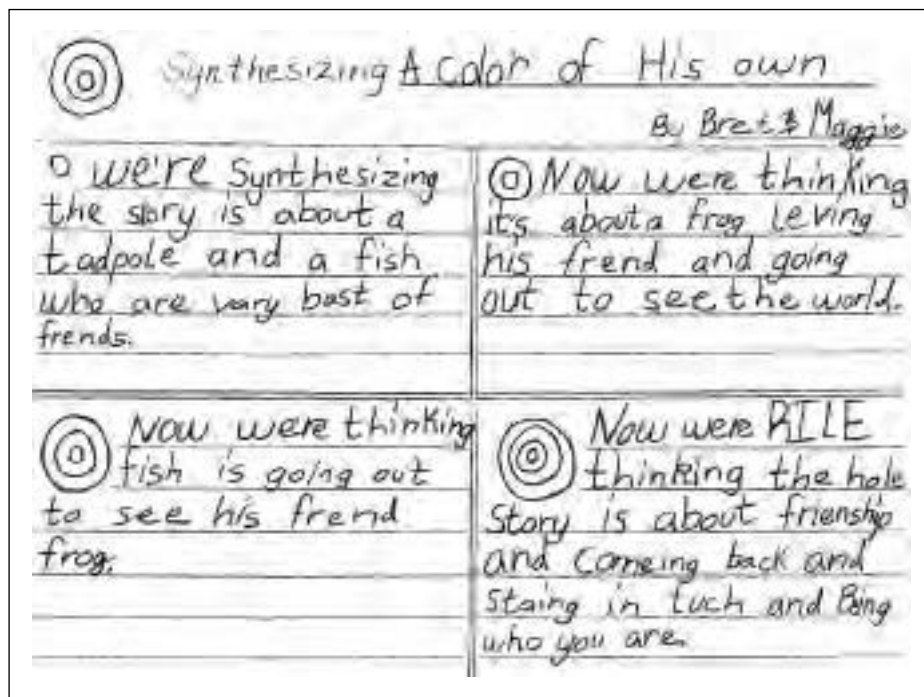 Synthesizing A Color of His own
By Bret & Maggie
we're Synthesizing
the story is about a
tadpole and a fish
who are vary best of
frends.
Now were thinking
it's about a frog leving
his frend and going
out to see the world.
Now were thinking
fish is going out
to see his frend
frog.
Now were RILE
thinking the hole
Story is about frienship
and Comeing back and
Staing in tuch and Being
who you are.